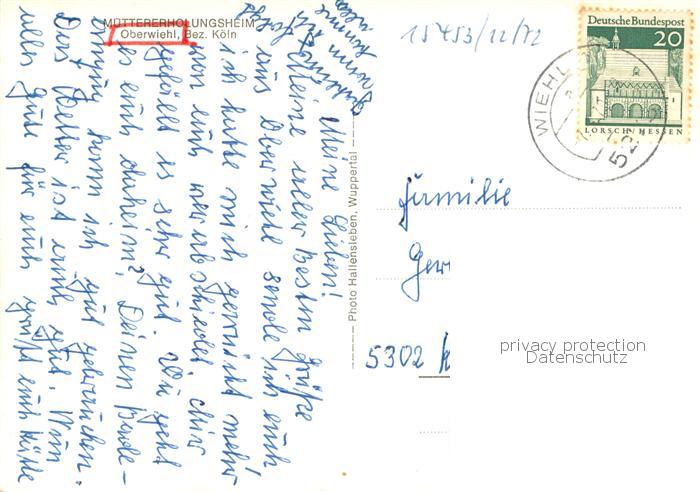 MÜTTERERHOLUNGSHEIM
Oberwiehl, Bez. Köln
15453/12/72
Deutsche Bundespost
20
LORSCH/HESSEN
WIEHL
52
Photo Hallensleben, Wuppertal
Meine Lieben!
Meine vielen Besten Grüße
aus Oberwiehl sende ich euch
ich hatte mich gewünscht mehr
von euch verabschiedet. Hier
gefällt es sehr gut. Wie geht
es euch daheim? Deinen Bade-
anzug kann ich gut gebrauchen.
Das Wetter ist auch gut. Nun
alles gute für euch grüßt euch Käthe
Familie
5302
privacy protection
Datenschutz